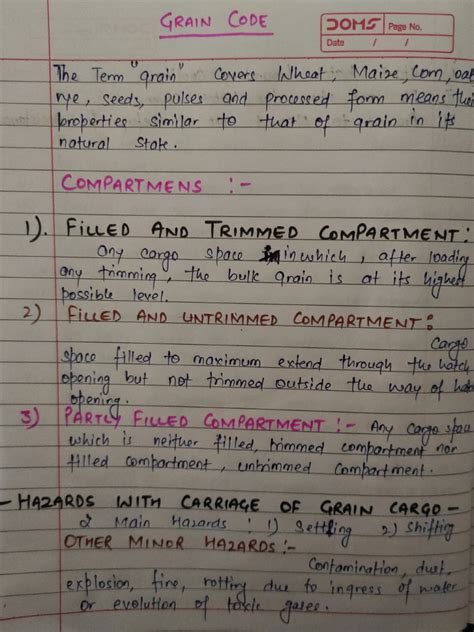 GRAIN CODE
DOMS Page No.
Date / /
The Term "grain" covers Wheat, Maize, Corn, oat
rye, seeds, pulses and processed form means thei
properties similar to that of grain in its
natural state.
COMPARTMENS :-
1). FILLED AND TRIMMED COMPARTMENT :
any cargo space in which, after loading
any trimming, the bulk grain is at its highest
possible level.
2) FILLED AND UNTRIMMED COMPARTMENT :
Cargo
space filled to maximum extend through the hatch
opening but not trimmed outside the way of hatc
opening.
3) PARTLY FILLED COMPARTMENT :- Any cargo space
which is neither filled, trimmed compartment nor
filled compartment, untrimmed compartment.
- HAZARDS WITH CARRIAGE OF GRAIN CARGO -
2 Main Hazards : 1) Settling 2) Shifting
OTHER MINOR HAZARDS :-
Contamination, dust,
explosion, fire, rotting due to ingress of water
or evolution of toxic gases.